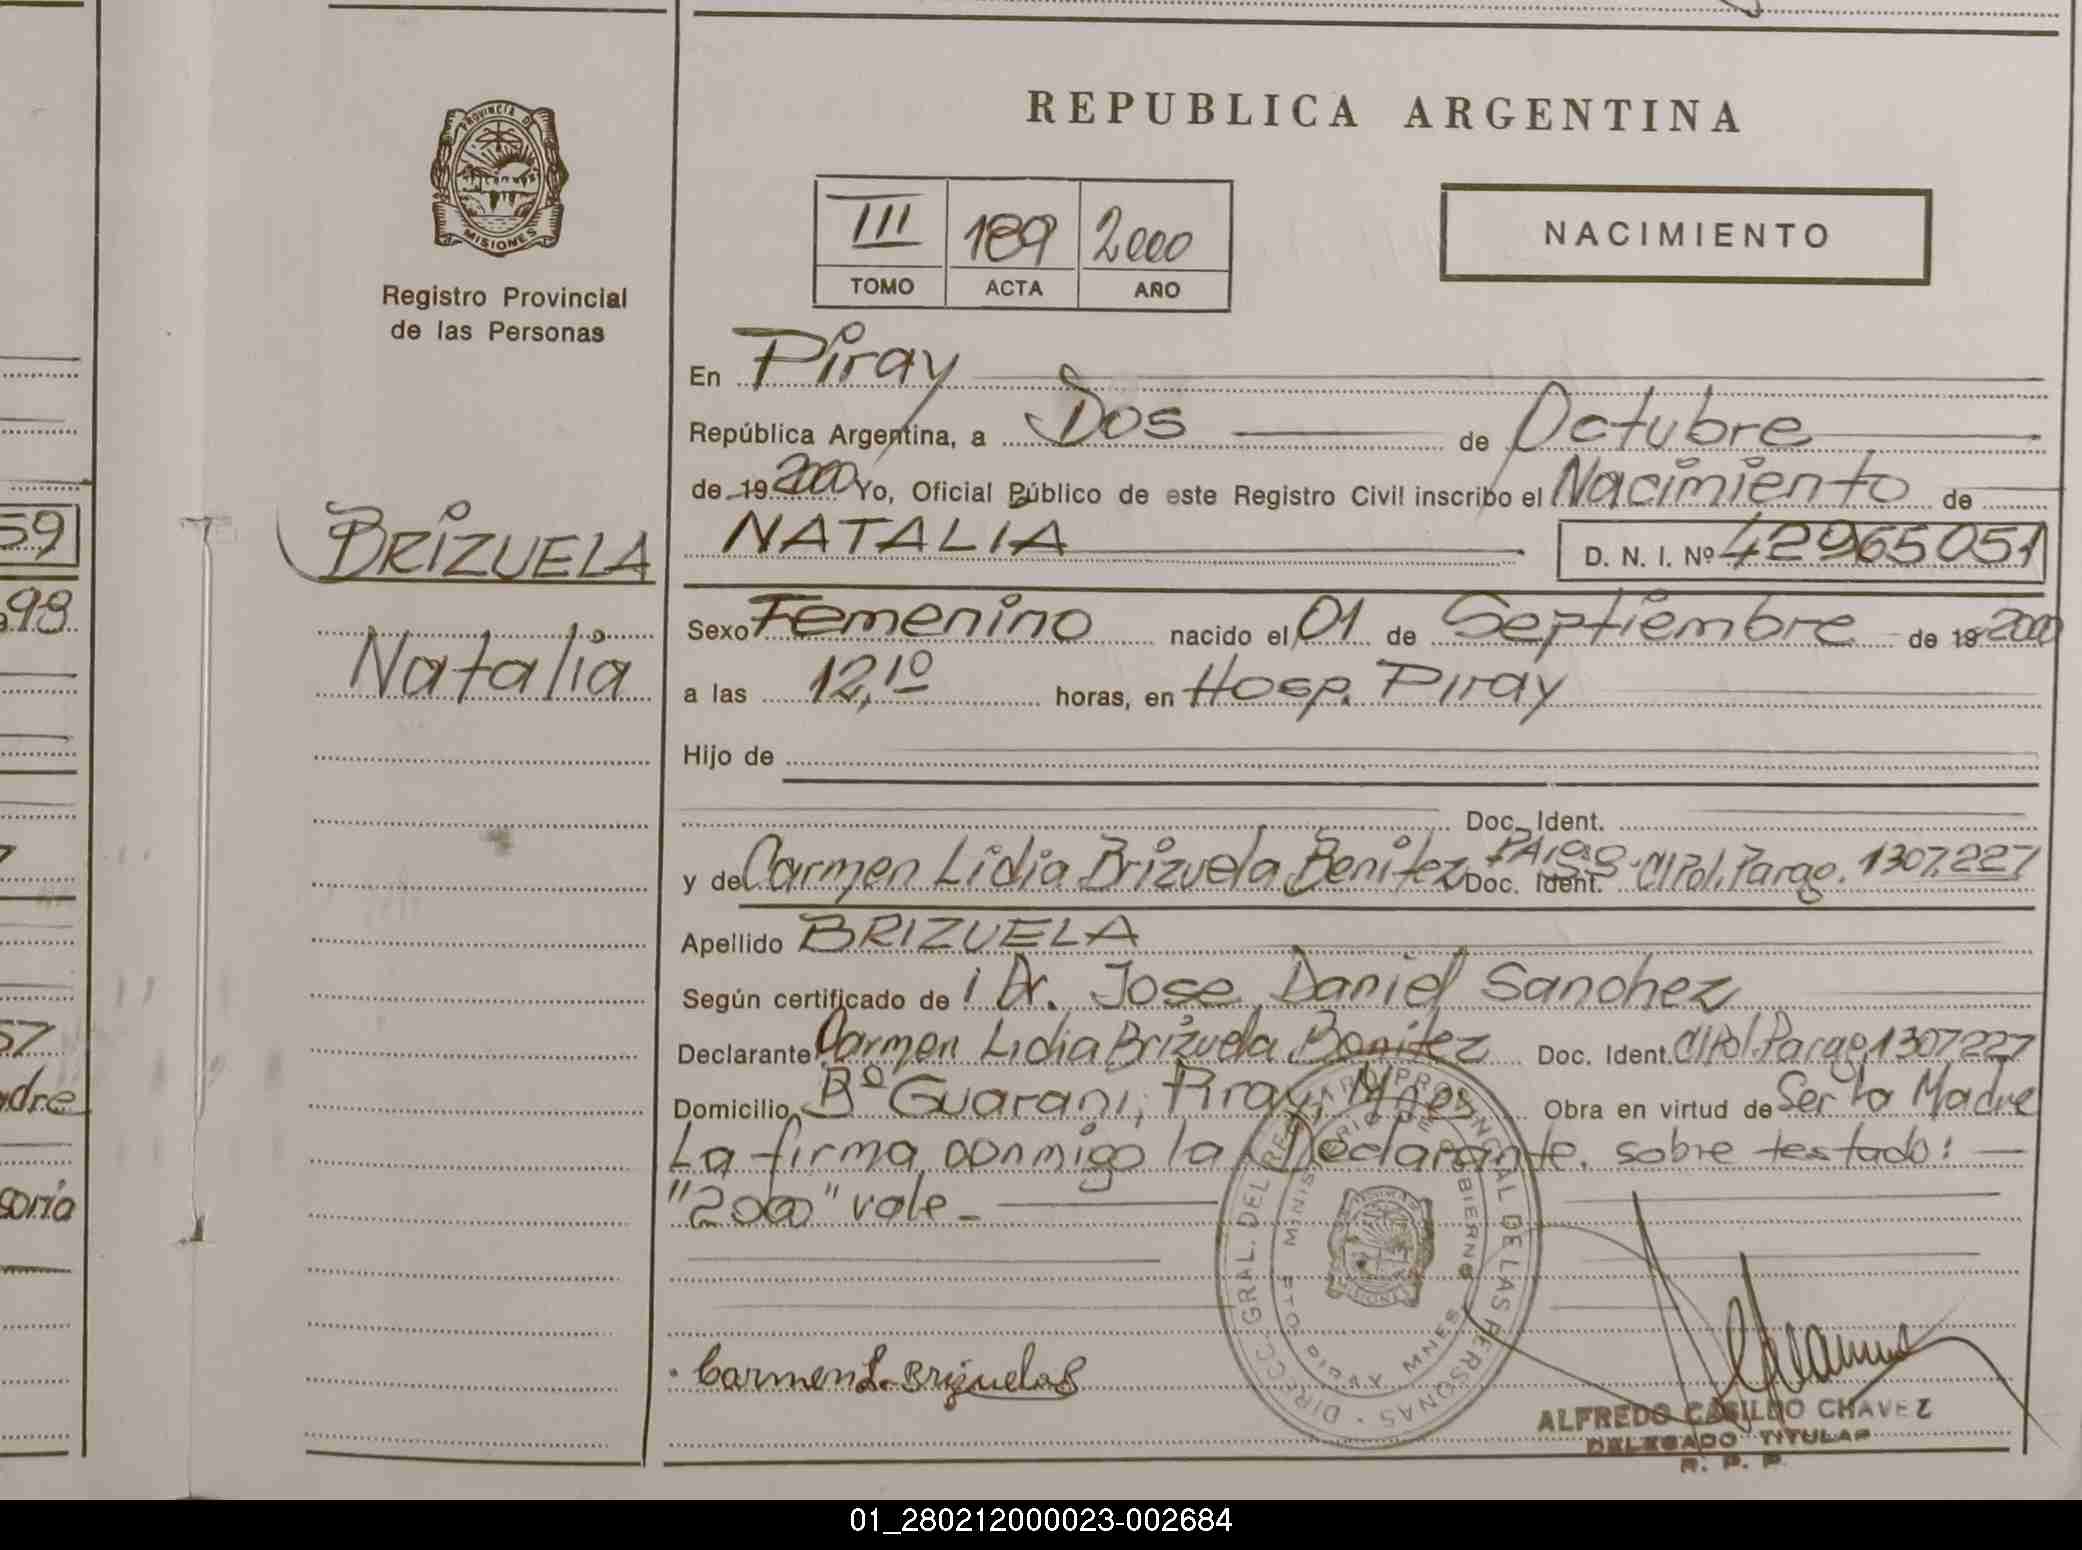 REPUBLICA ARGENTINA
PROVINCIA DE
MISIONES
Registro Provincial
de las Personas
III 189 2000
TOMO ACTA AÑO
NACIMIENTO
En Piray
República Argentina, a Dos de Octubre
de 19 2000 Yo, Oficial Público de este Registro Civil inscribo el Nacimiento de
BRIZUELA
Natalia
NATALIA D. N. I. Nº 42965051
Sexo Femenino nacido el 01 de Septiembre de 19 2000
a las 12,10 horas, en Hosp. Piray
Hijo de
Doc. Ident.
y de Carmen Lidia Brizuela Benitez Doc. Ident. CI Pol. Parag. 1307.227
Apellido BRIZUELA
Según certificado de Dr. Jose Daniel Sanchez
Declarante Carmen Lidia Brizuela Benitez Doc. Ident. CI Pol. Parag. 1307227
Domicilio Bº Guarani, Piray, Mnes Obra en virtud de Ser la Madre
La firma conmigo la Declarante. sobre testado:
"2000" vale
DIRECC. GRAL. DEL REGISTRO PROVINCIAL DE LAS PERSONAS
MINISTERIO DE GOBIERNO
PTO PIRAY MNES
Carmen L. Brizuela B
ALFREDO CASILDO CHAVEZ
DELEGADO TITULAR
R. P. P.
59
98
57
adre
soria
01_280212000023-002684